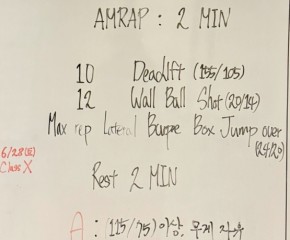 AMRAP : 2 MIN
10 Deadlift (155/105)
12 Wall Ball Shot (20/14)
Max rep Lateral Burpee Box Jump over
(24/20)
6/28(토)
Class X
Rest 2 MIN
A : (115/75) 이상, 무게 자유